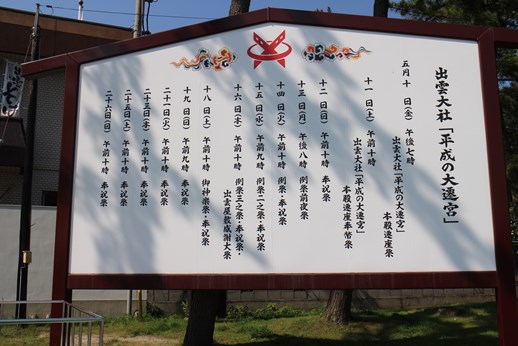 出雲大社「平成の大遷宮」
五月十日(金)午後七時
出雲大社「平成の大遷宮」
本殿遷座祭
十一日(土)午前十時
出雲大社「平成の大遷宮」
本殿遷座奉幣祭
十二日(日)午前十時 奉祝祭
十三日(月)午後八時 例祭前夜祭
十四日(火)午前十時 例祭・奉祝祭
十五日(水)午前九時 例祭二之祭・奉祝祭
十六日(木)午前十時 例祭三之祭・奉祝祭・
出雲屋敷感謝大祭
十八日(土)午前十時 御神楽祭・奉祝祭
十九日(日)午前九時 奉祝祭
二十一日(火)午前十時 奉祝祭
二十三日(木)午前十時 奉祝祭
二十五日(土)午前十時 奉祝祭
二十六日(日)午前十時 奉祝祭